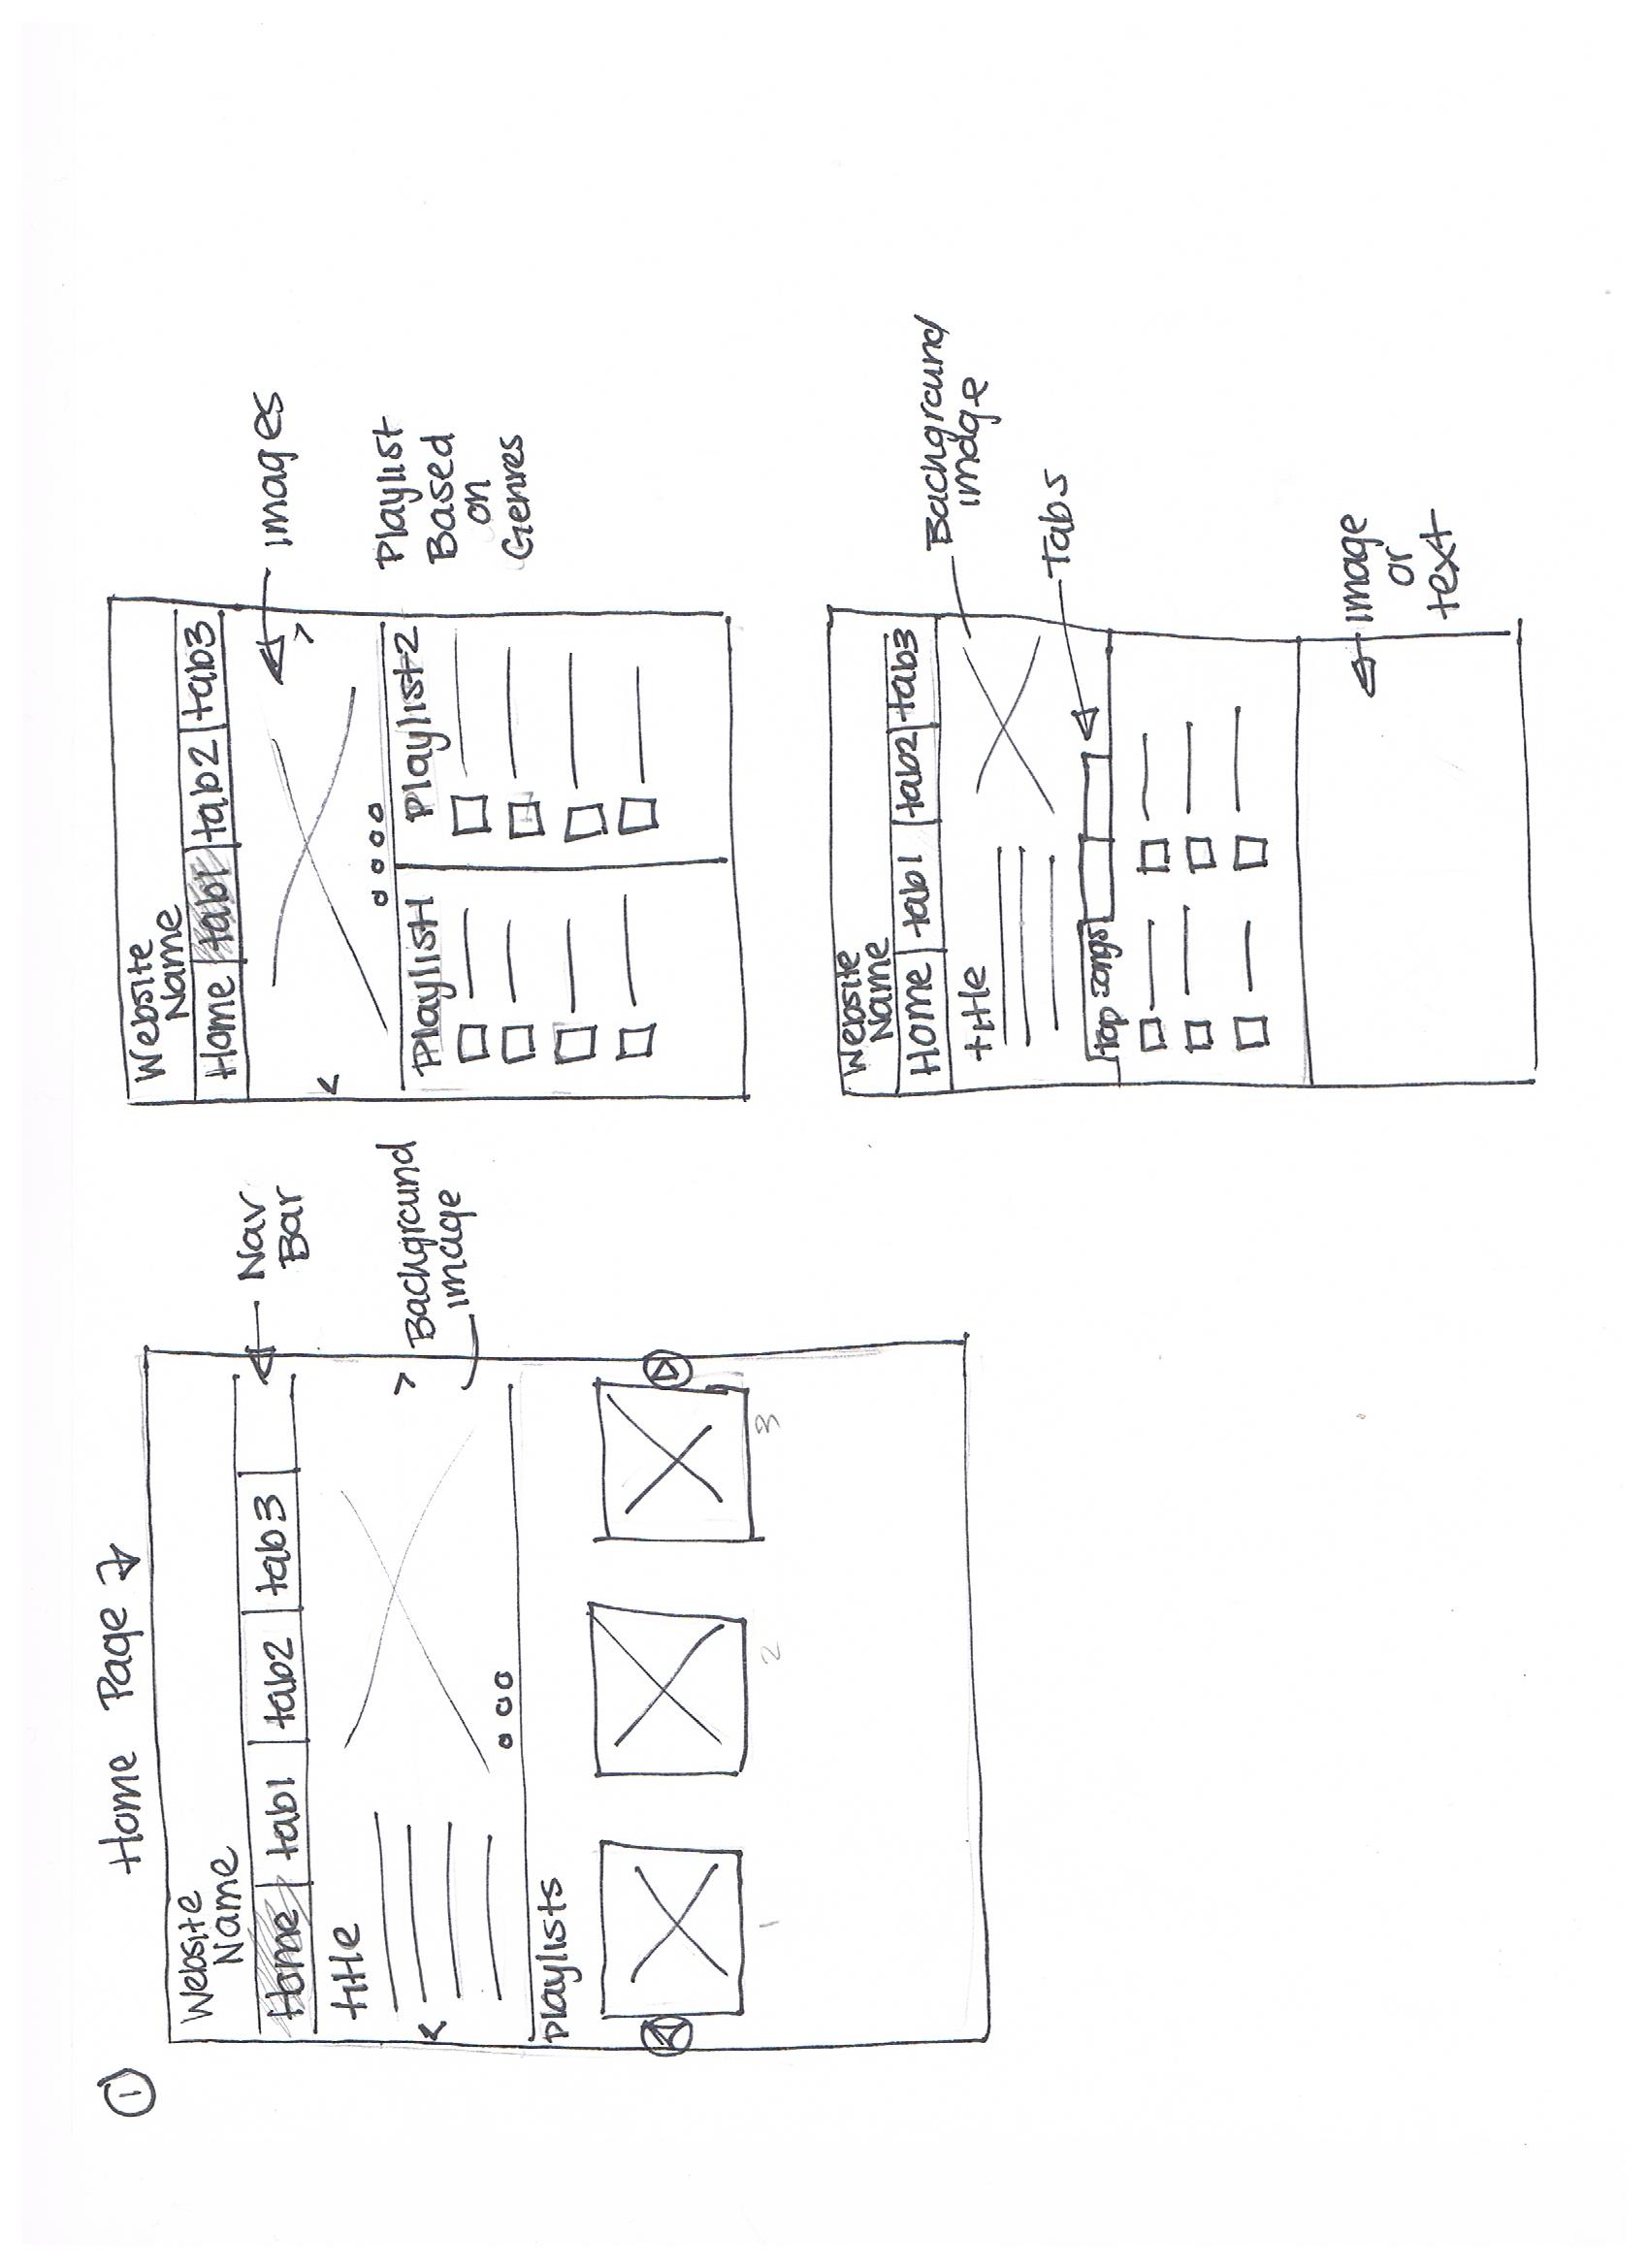 1
Home Page
Website
Name
Home tab1 tab2 tab3
Nav
Bar
title
Background
image
Playlists
1 2 3
Website
Name
Home tab1 tab2 tab3
images
Playlist1 Playlist2
Playlist
Based
on
Genres
Website
Name
Home tab1 tab2 tab3
title
Background
image
Tabs
top songs
image
or
text